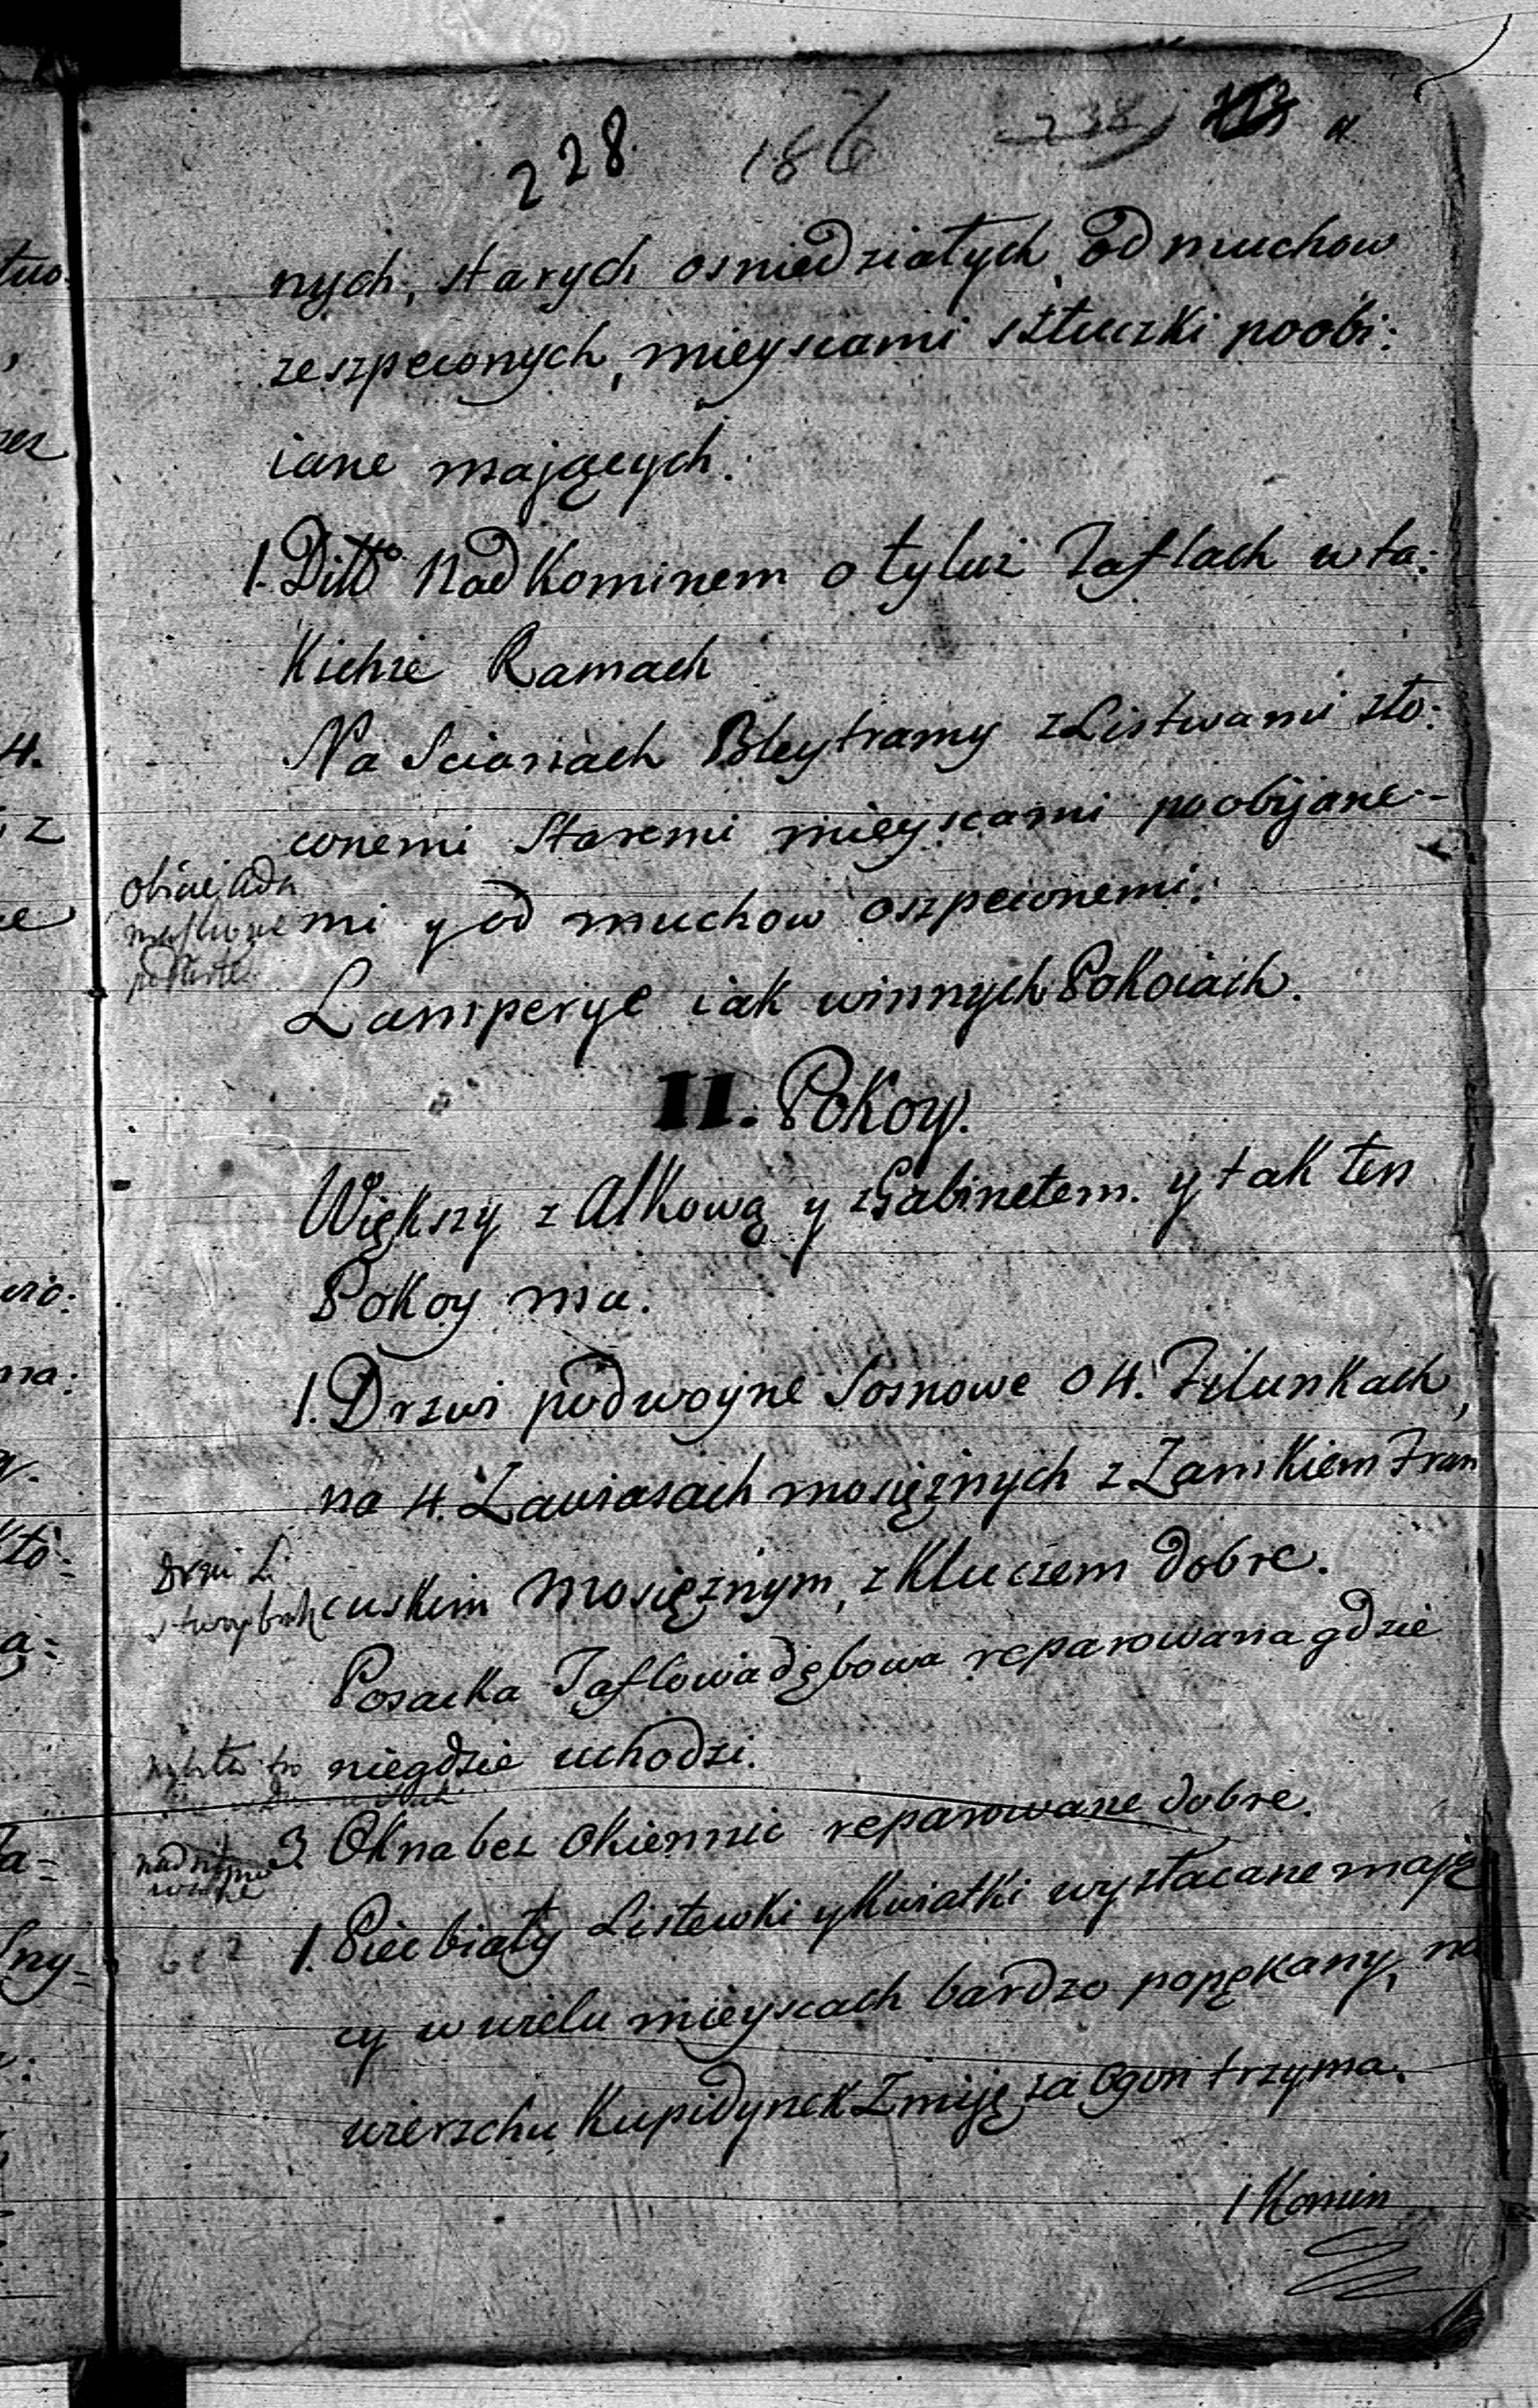 228. 186
nych, starych osniedziałych, od muchow
zeszpeconych, mieyscami sztuczki poobi:
iane mających.
1. Ditto Nad Kominem o tyluż Taflach w ta:
Kichże Ramach
Na Scianach Bleytramy z Listwami zło:
conemi Staremi mieyscami poobijane-
mi y od muchow oszpeconemi.
Lamperye iak w innych Pokoiach.
II. Pokoy.
Większy z Alkową y z Gabinetem. y tak ten
Pokoy ma.
1. Drzwi podwoyne Sosnowe o 4. Filunkach,
na 4. Zawiasach mosiężnych z Zamkiem Fran
cuskim Mosiężnym, z Kluczem dobre.
Posacka Taflowa dębowa reparowana gdzie
niegdzie uchodzi.
3. Okna bez Okiennic reparowane dobre.
1. Piec biały Listewki y Kwiatki wyzłacane mają
cy w wielu mieyscach bardzo popękany, na
wierzchu Kupidynek Zmiję za Ogon trzyma.
1 Komin